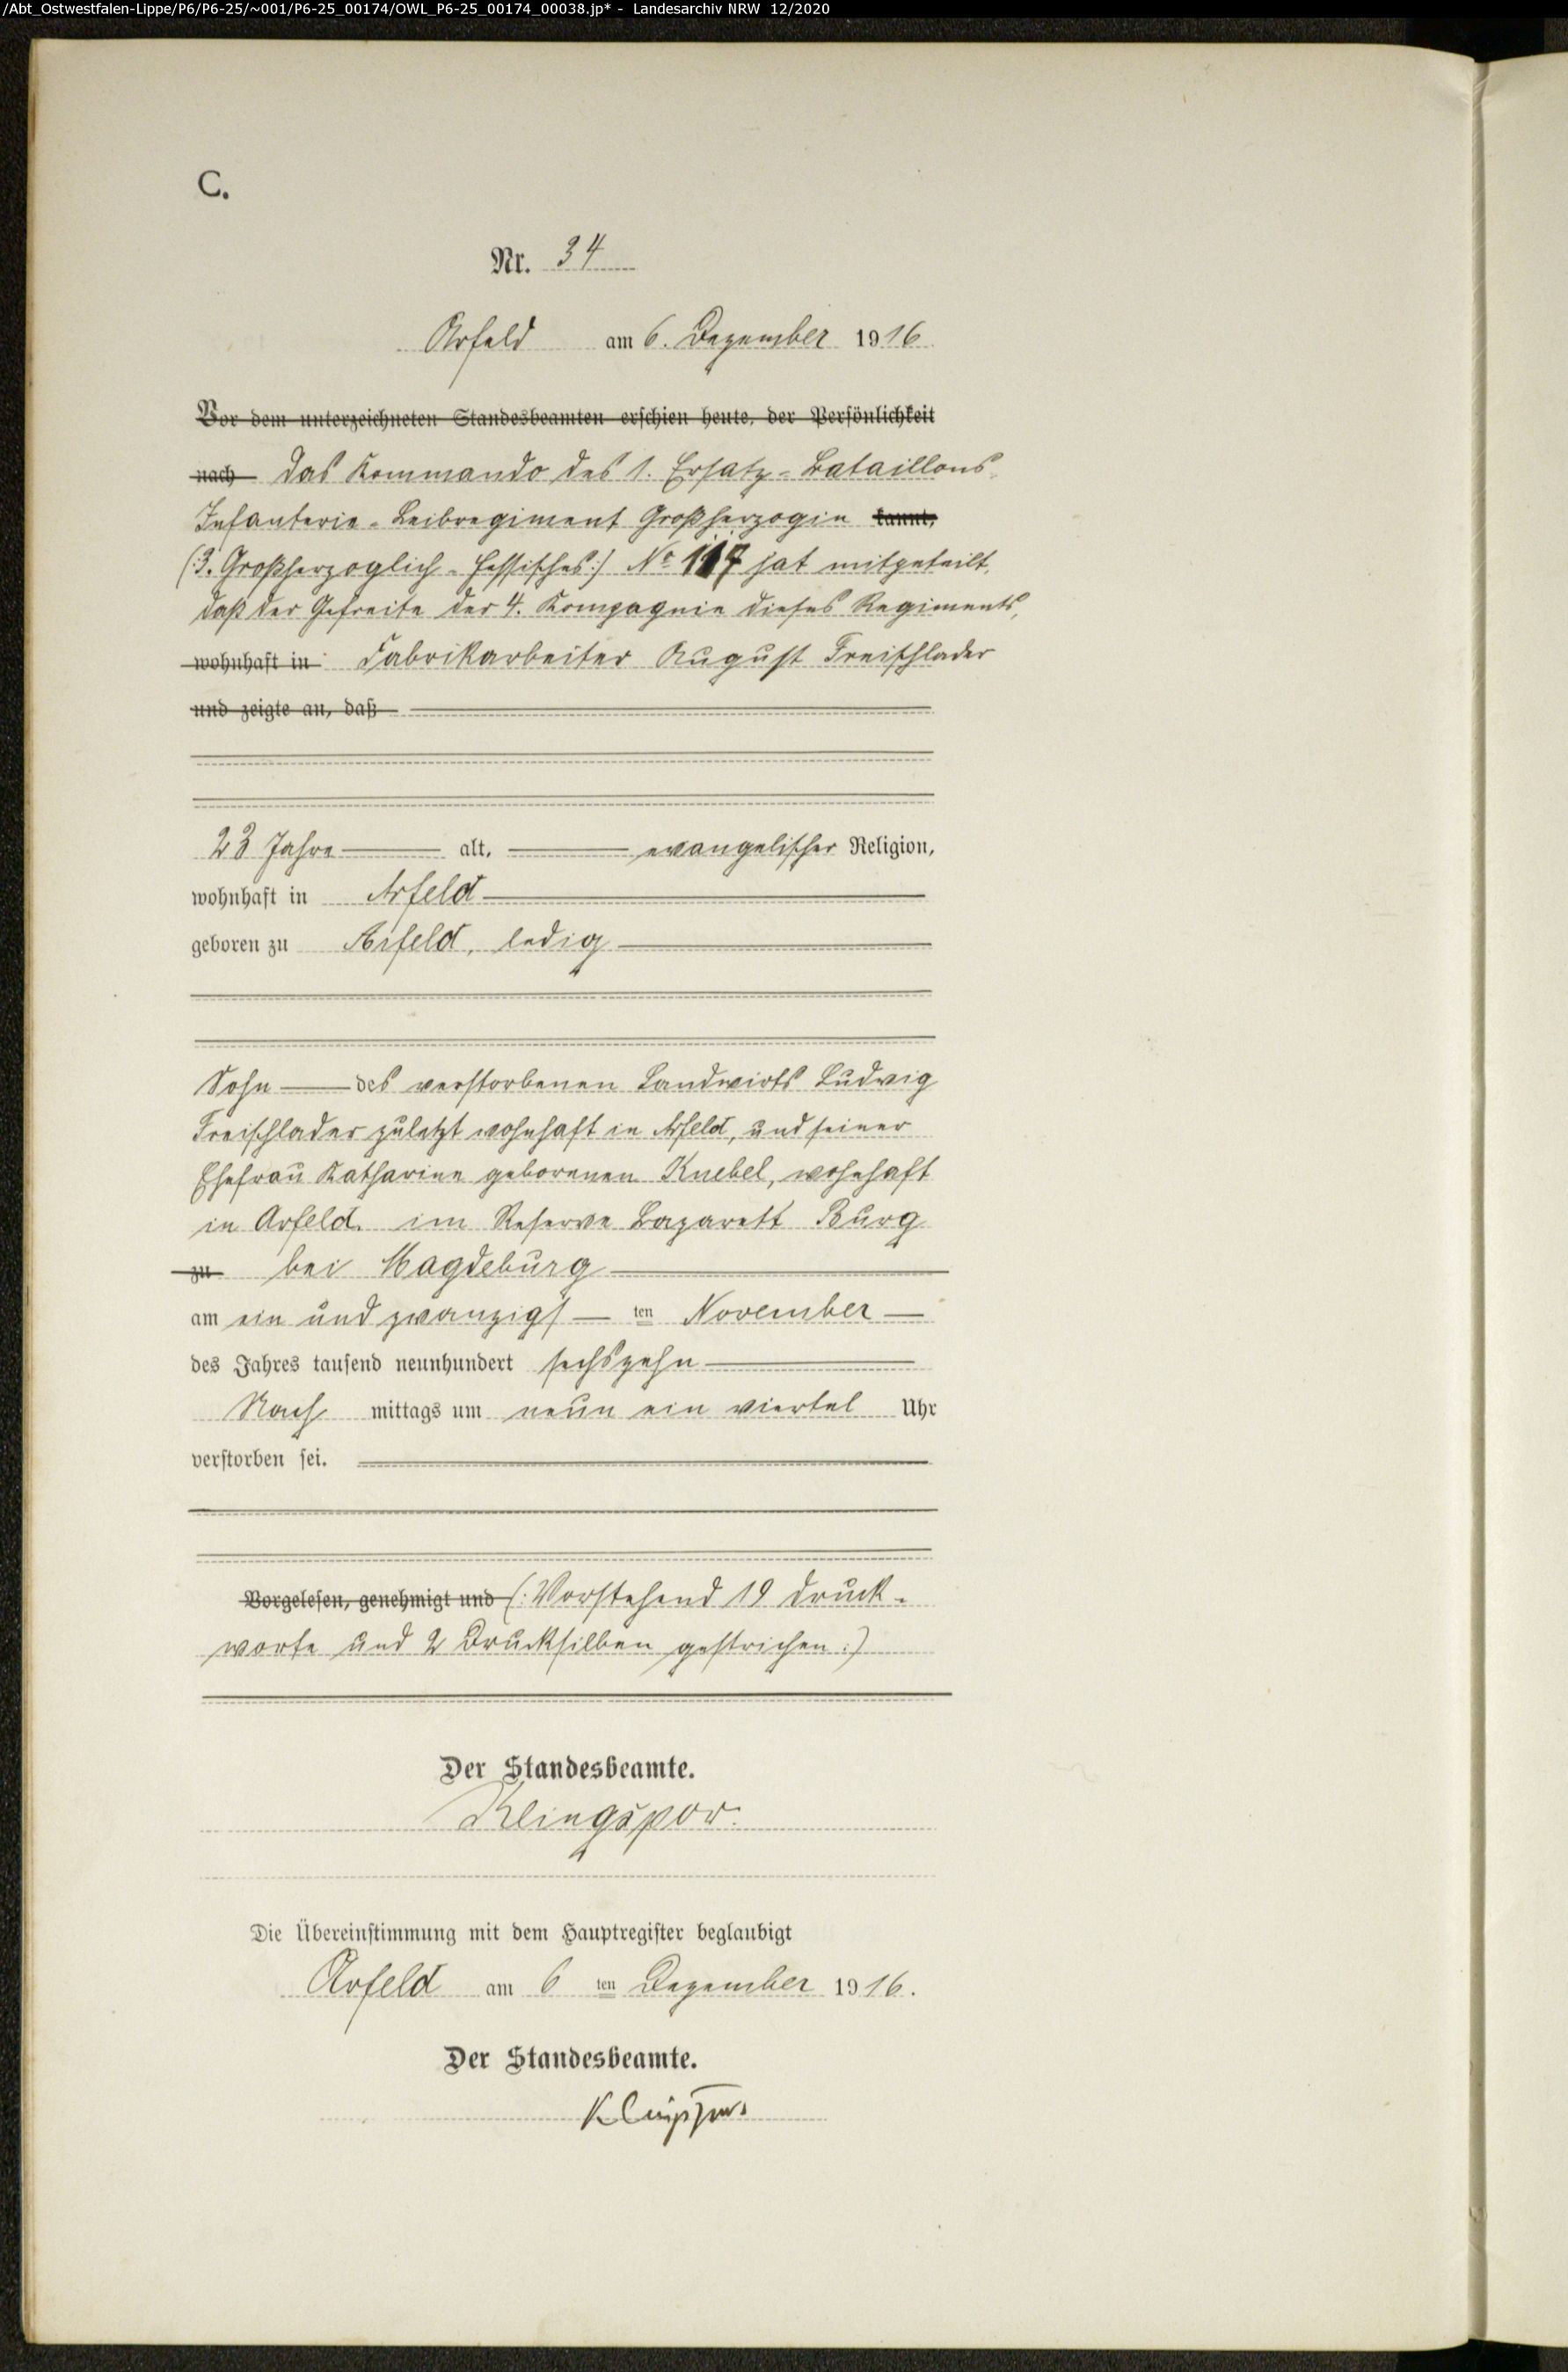 /Abt_Ostwestfalen-Lippe/P6/P6-25/~001/P6-25_00174/OWL_P6-25_00174_00038.jp* - Landesarchiv NRW 12/2020
C.
Nr. 34
Arfeld am 6. Dezember 1916.
Vor dem unterzeichneten Standesbeamten erschien heute, der Persönlichkeit
nach das Kommando des 1. Ersatz-Bataillons
Infanterie-Leibregiment Großherzogin kannt,
(:3. Großherzoglich-Hessisches:) No 117 hat mitgeteilt,
daß der Gefreite der 4. Kompagnie dieses Regiments,
wohnhaft in Fabrikarbeiter August Freischlader
und zeigte an, daß
23 Jahre alt, evangelischer Religion,
wohnhaft in Arfeld
geboren zu Arfeld, ledig
Sohn des verstorbenen Landwirts Ludwig
Freischlader zuletzt wohnhaft in Arfeld, und seiner
Ehefrau Katharine geborenen Knebel, wohnhaft
in Arfeld. im Reserve Lazarett Burg
zu bei Magdeburg
am ein und zwanzigs ten November
des Jahres tausend neunhundert sechszehn
Nach mittags um neun ein viertel Uhr
verstorben sei.
Vorgelesen, genehmigt und (: Vorstehend 19 Druck-
worte und 2 Drucksilben gestrichen :)
Der Standesbeamte.
Klingspor.
Die Übereinstimmung mit dem Hauptregister beglaubigt
Arfeld am 6 ten Dezember 1916.
Der Standesbeamte.
Klingspor